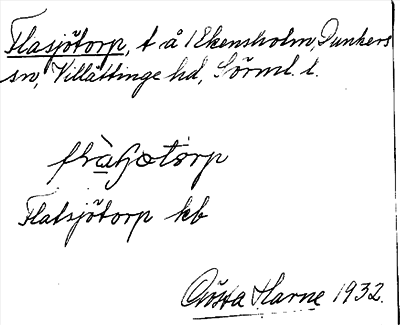 Flasjötorp, t å Ekensholm, Dunkers
sn, Villåttinge hd, Sörml. l.
Flatsjötorp kb
Gösta Harne 1932.